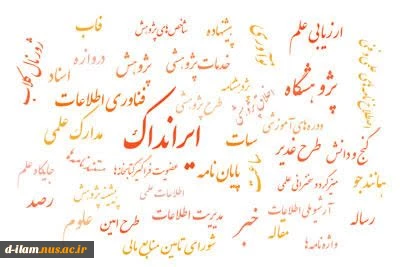 ارزیابی علم
پیشنهاده
شاخص‌های پژوهش
فاب
ژورنال کلاب
نوآوری
خدمات پژوهشی
پژوهش
دروازه
اسناد
پژوهشگاه
پژوهشنامه
طرح پژوهشی
فناوری اطلاعات
دوره‌های آموزشی
ایرانداک
مدارک علمی
گنج و دانش
طرح غدیر
سات
پایان نامه
عضویت فراگیر کتابخانه‌ها
جایگاه علم
همانندجو
میزگرد و سخنرانی علمی
اطلاعات علمی
پیشینه پژوهش
رصد
رساله
آرشیو ملی اطلاعات
مقاله
خبر
مدیریت اطلاعات
طرح امین
علوم
واژه‌نامه‌ها
شورای تامین منابع مالی
d-ilam.nus.ac.ir